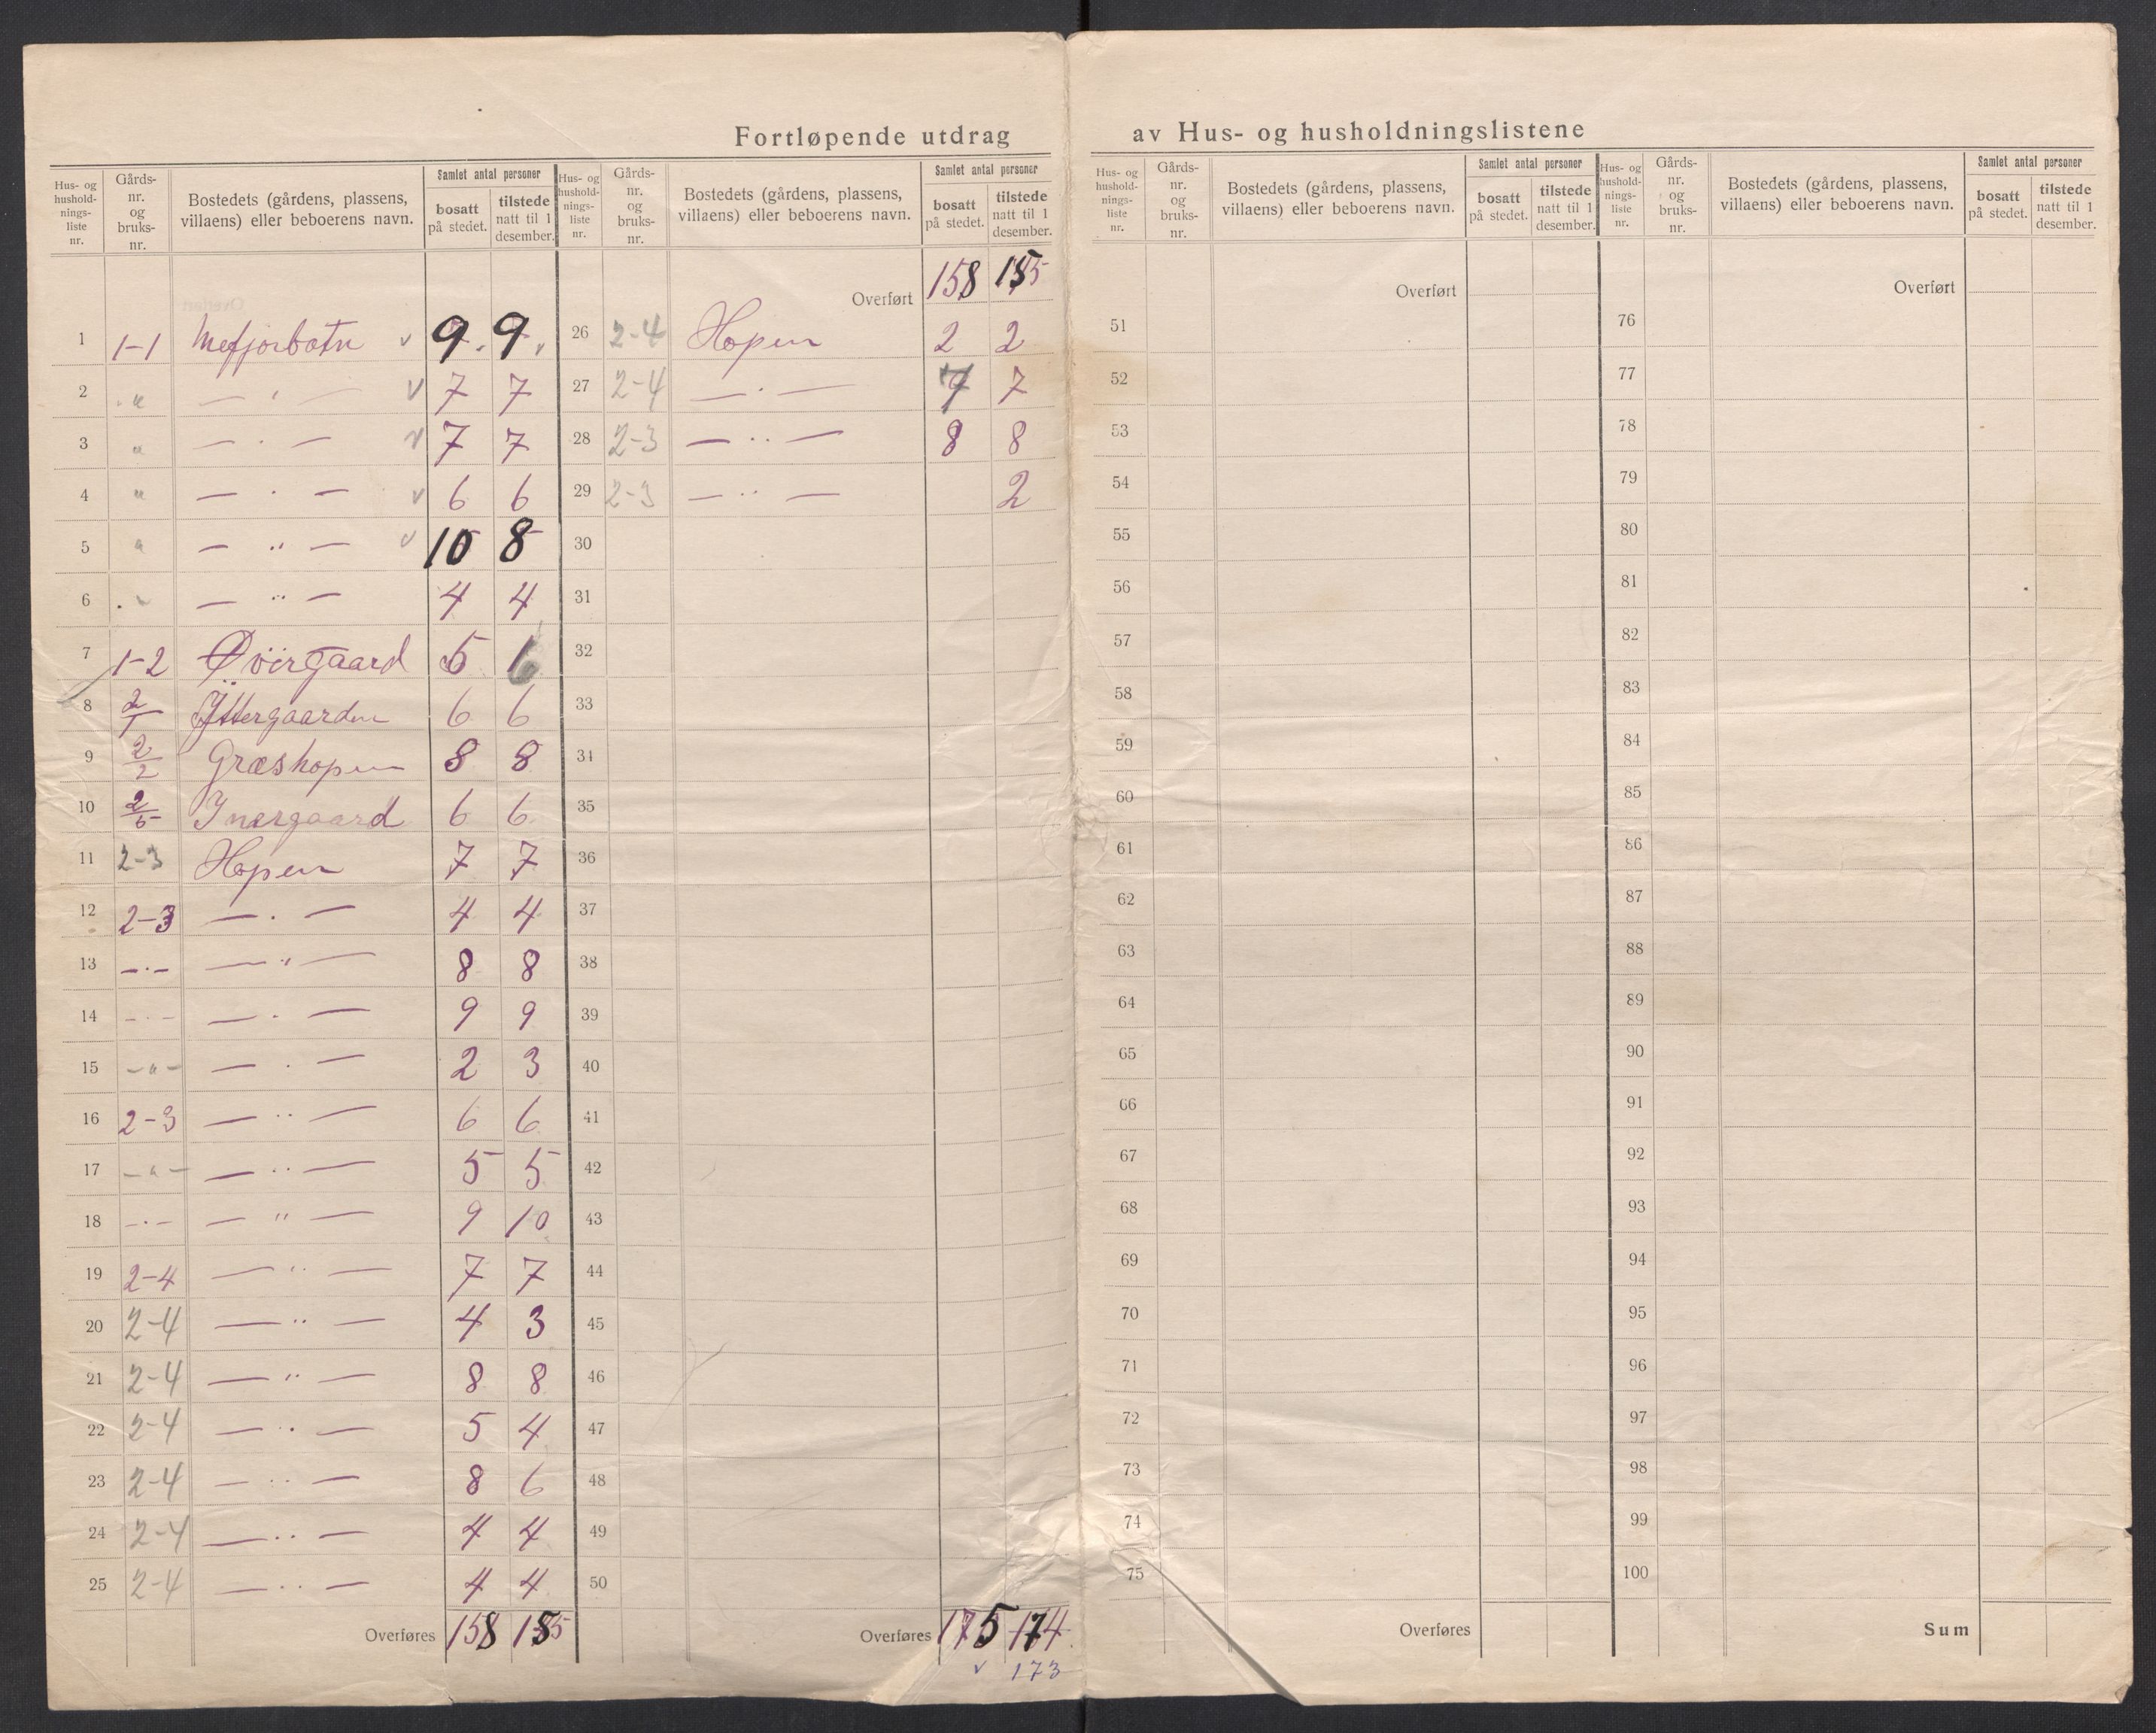 Fortløpende utdrag av Hus- og husholdningslistene
Hus- og hushold-nings-liste nr. Gårds-nr. og bruks-nr. Bostedets (gårdens, plassens, villaens) eller beboerens navn. Samlet antal personer bosatt på stedet. tilstede natt til 1 desember.
1 1-1 Mefjorbotn v 9. 9.
2 " — " — v 7 7
3 " — . — v 7 7
4 " — . — v 6 6
5 " — " — v 10 8
6 " — " — 4 4
7 1-2 Øvergaard 5 6
8 2/1 Yttergaarden 6 6
9 2/2 Græshopen 8 8
10 2/5 Inergaard 6 6
11 2-3 Hopen 7 7
12 2-3 — . — 4 4
13 -.- — " — 8 8
14 -.- — . — 9 9
15 -"- — . — 2 3
16 2-3 — " — 6 6
17 -"- — " — 5 5
18 -.- — " — 9 10
19 2-4 — " — 7 7
20 2-4 — " — 4 3
21 2-4 — " — 8 8
22 2-4 — . — 5 4
23 2-4 — " — 8 6
24 2-4 — " — 4 4
25 2-4 — " — 4 4
Overføres 158 155
Hus- og hushold-nings-liste nr. Gårds-nr. og bruks-nr. Bostedets (gårdens, plassens, villaens) eller beboerens navn. Samlet antal personer bosatt på stedet. tilstede natt til 1 desember.
Overført 158 155
26 2-4 Hopen 2 2
27 2-4 — . — 7 7
28 2-3 — " — 8 8
29 2-3 — " — 2
30
31
32
33
34
35
36
37
38
39
40
41
42
43
44
45
46
47
48
49
50
Overføres 175 174
v 173
Hus- og hushold-nings-liste nr. Gårds-nr. og bruks-nr. Bostedets (gårdens, plassens, villaens) eller beboerens navn. Samlet antal personer bosatt på stedet. tilstede natt til 1 desember.
Overført
51
52
53
54
55
56
57
58
59
60
61
62
63
64
65
66
67
68
69
70
71
72
73
74
75
Overføres
Hus- og hushold-nings-liste nr. Gårds-nr. og bruks-nr. Bostedets (gårdens, plassens, villaens) eller beboerens navn. Samlet antal personer bosatt på stedet. tilstede natt til 1 desember.
Overført
76
77
78
79
80
81
82
83
84
85
86
87
88
89
90
91
92
93
94
95
96
97
98
99
100
Sum